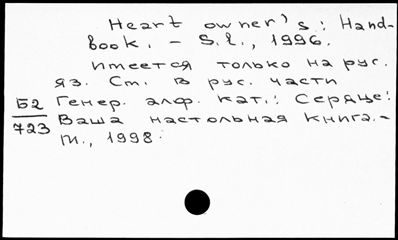 Heart owner's: Hand-
book. – S.l., 1996.
имеется только на рус.
яз. См. в рус. части
Б2 Генер. алф. кат.: Сердце:
723 Ваша настольная книга.–
М., 1998.